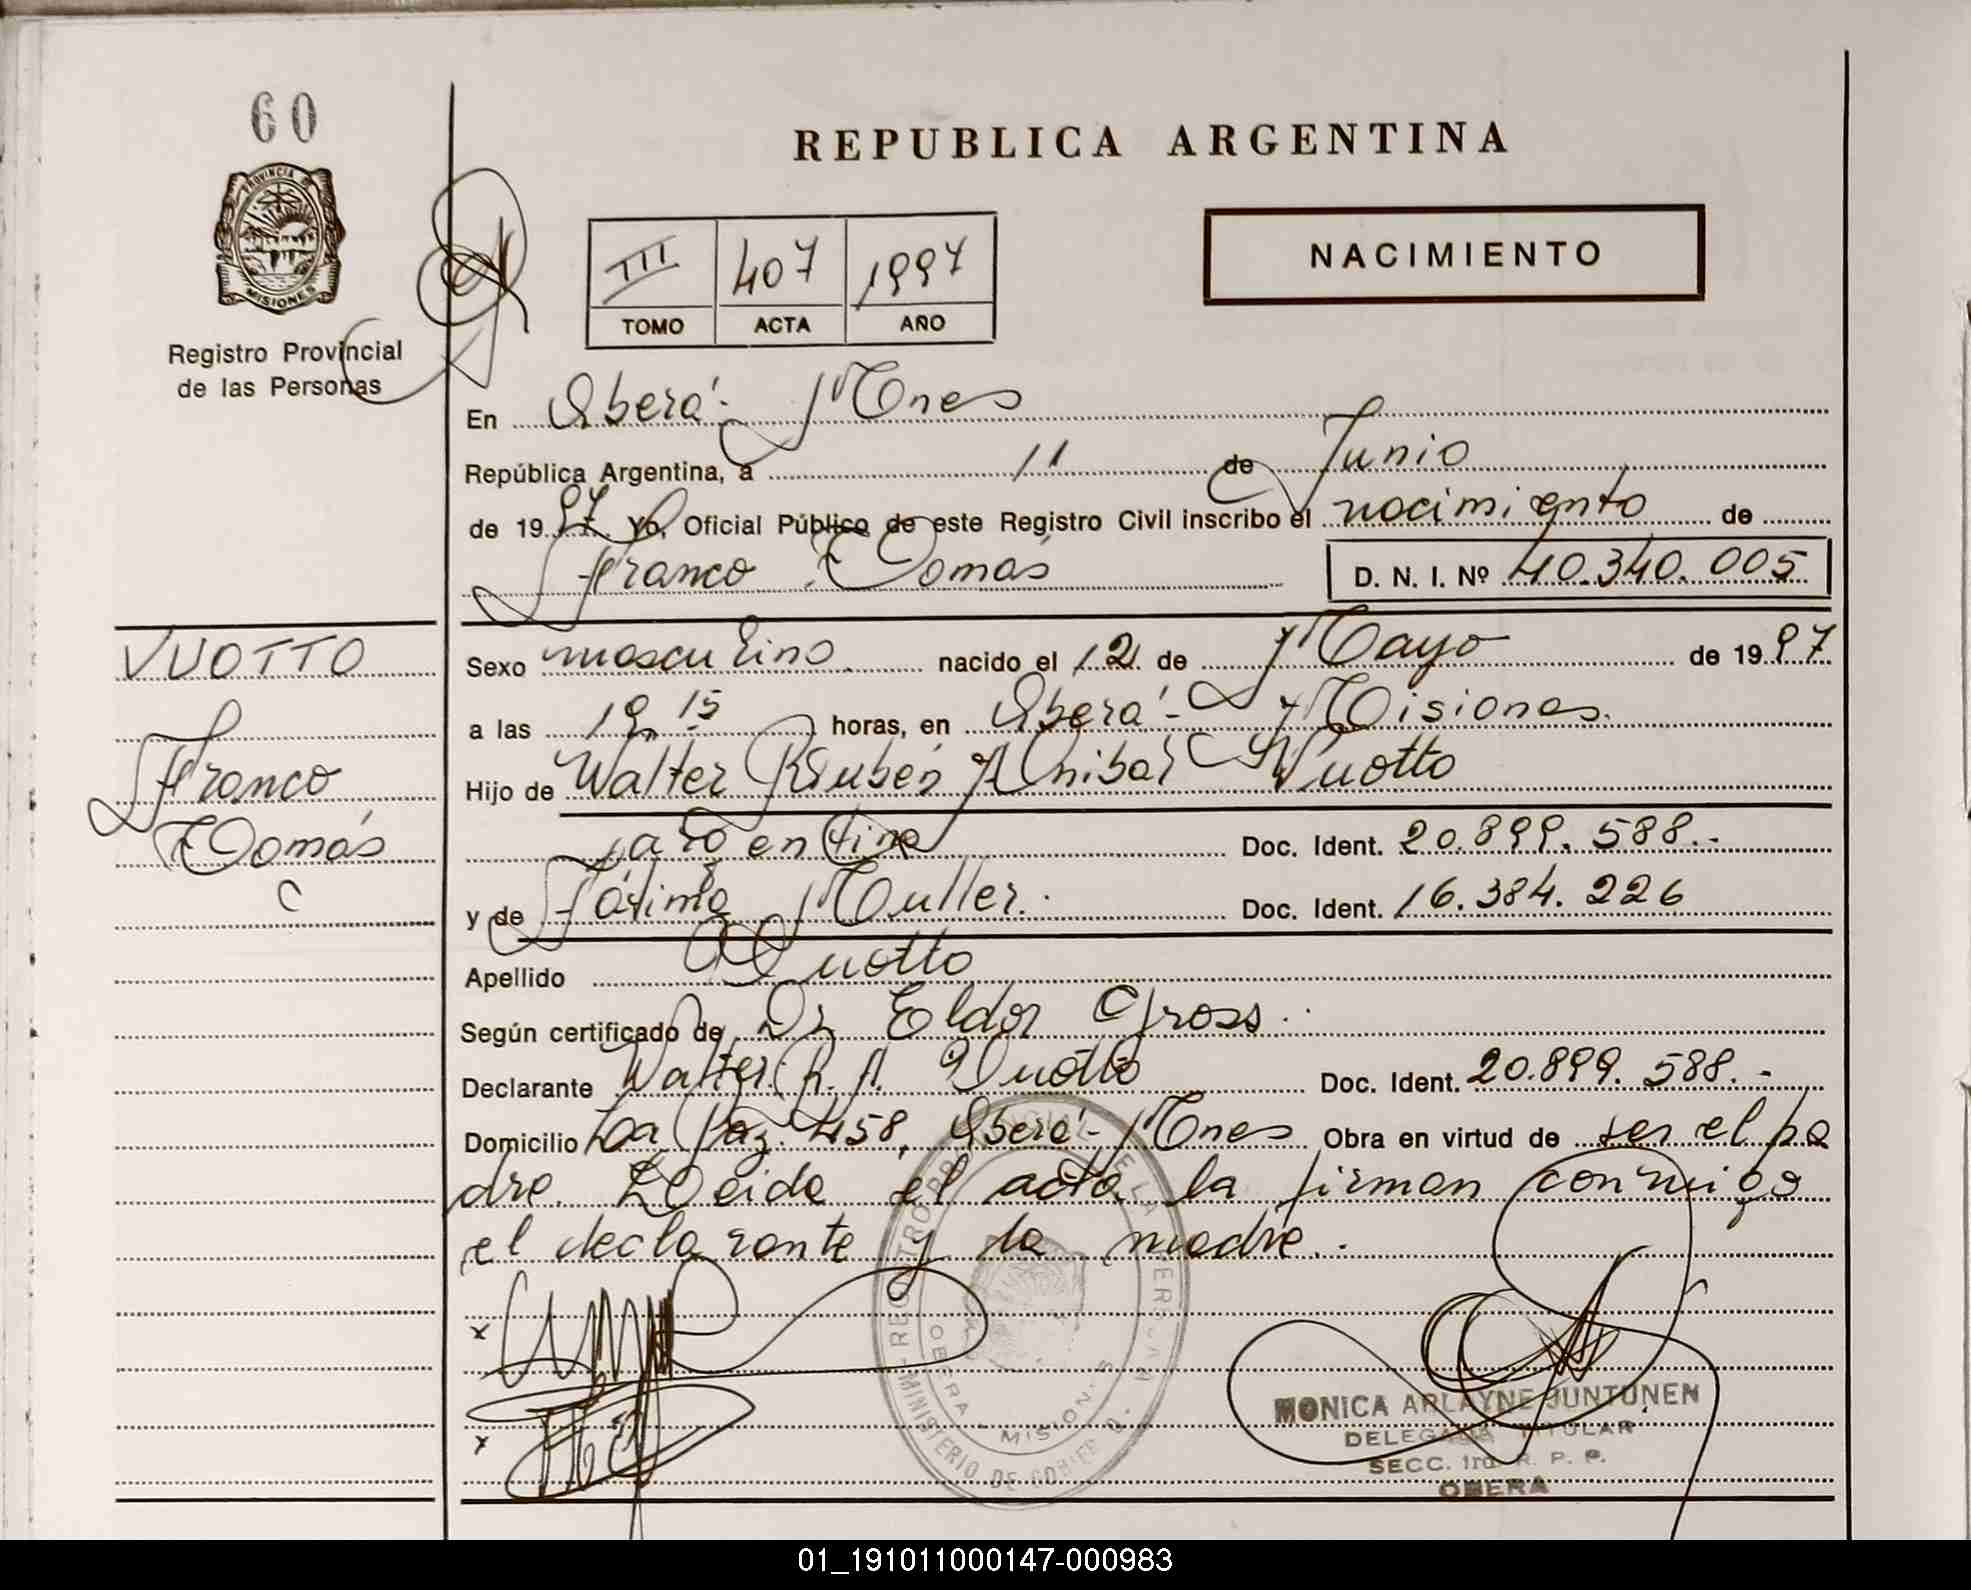 60
REPUBLICA ARGENTINA
PROVINCIA DE
MISIONES
Registro Provincial
de las Personas
III 407 1997
TOMO ACTA AÑO
NACIMIENTO
En Oberá - Mnes
República Argentina, a 11 de Junio
de 1997. Yo, Oficial Público de este Registro Civil inscribo el nacimiento de
Franco Tomás D. N. I. Nº 40.340.005
VUOTTO
Franco
Tomás
Sexo masculino nacido el 12 de Mayo de 1997
a las 19 15 horas, en Oberá - Misiones.
Hijo de Walter Rubén Anibal Vuotto
argentina Doc. Ident. 20.899.588.-
y de Fátima Muller. Doc. Ident. 16.384.226
Apellido Vuotto
Según certificado de Dr Eldor Gross.
Declarante Walter R. A. Vuotto Doc. Ident. 20.899.588.-
Domicilio La Paz 458, Oberá - Mnes Obra en virtud de ser el pa
dre. Leida el acta la firman conmigo
el declarante y la madre.-
x
x
REGISTRO PROVINCIAL DE LAS PERSONAS
MINISTERIO DE GOBIERNO
OBERA - MISIONES
MONICA ARLAYNE JUNTUNEN
DELEGADA TITULAR
SECC. 1ra. R. P. P.
OBERA
01_191011000147-000983